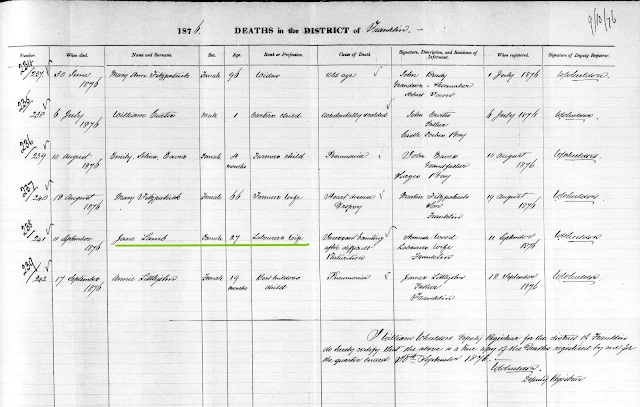 1876. DEATHS in the DISTRICT of Franklin.
9/10/76
Number. When died. Name and Surname. Sex. Age. Rank or Profession. Cause of Death. Signature, Description, and Residence of Informant. When registered. Signature of Deputy Registrar.
234
237 30 June 1876 Mary Ann Fitzpatrick Female 96 Widow Old age John Brady 1 July 1876 WWheildon
Grandson - Shoemaker
235
238 6 July 1876 William Curtis Male 1 Carters child Accidentally scalded John Curtis 6 July 1876 WWheildon
Father
Castle Forbes Bay
236
239 10 August 1876 Emily Selina Eaves Female 8 months Farmers child Pneumonia John Eaves 10 August 1876 WWheildon
Grandfather
Surges Bay
237
240 18 August 1876 Mary Fitzpatrick Female 66 Farmers wife Heart disease Dropsy Fitzpatrick 19 August 1876 WWheildon
Son
Franklin
238
241 11 September 1876 Jane Lamb Female 27 Labourers wife vomiting after difficult Parturition Ward 11 September 1876 WWheildon
Labourers wife
Franklin
239
242 17 September 1876 Annie Littlejohn Female 19 months Boat builders child Pneumonia James Littlejohn 18 September 1876 WWheildon
Father
Franklin
I William Wheildon Deputy Registrar for the district of Franklin
do hereby certify that the above is a true copy of the Deaths registered by me for
the quarter ended 30th September 1876.
WWheildon.
Deputy Registrar